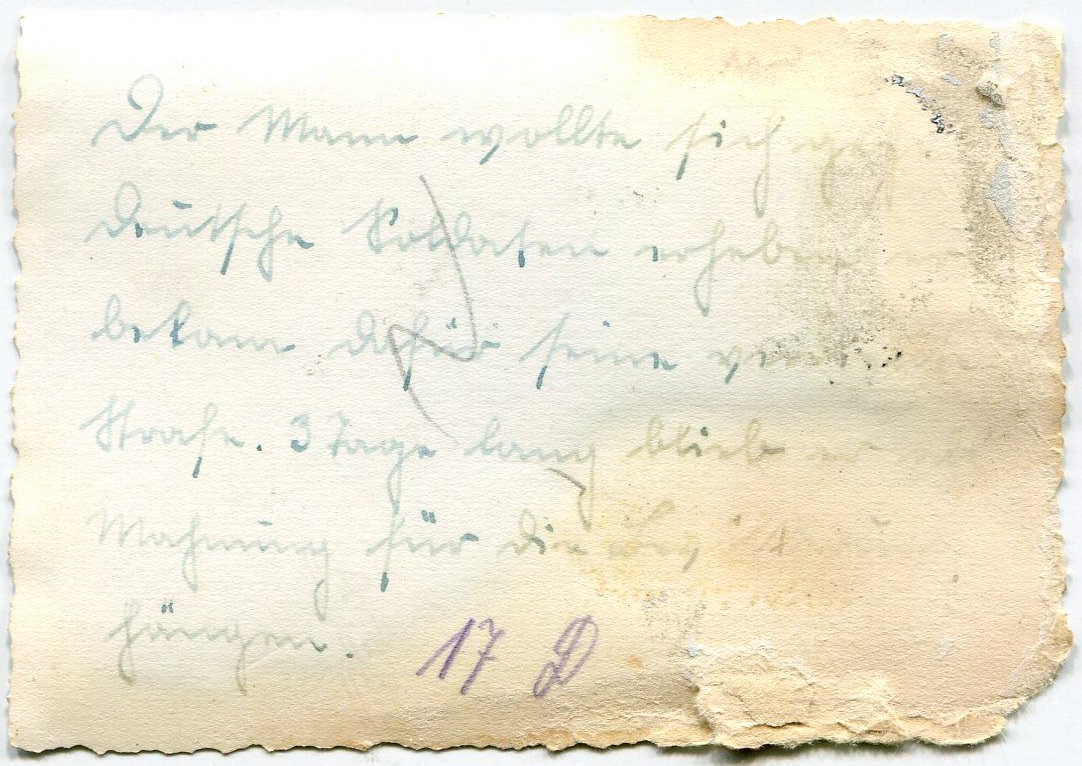 Der Mann wollte sich
deutsche Soldaten erheben
bekam dafür seine
Strafe. 3 Tage lang blieb er
Mahnung für die
hängen.
17 D